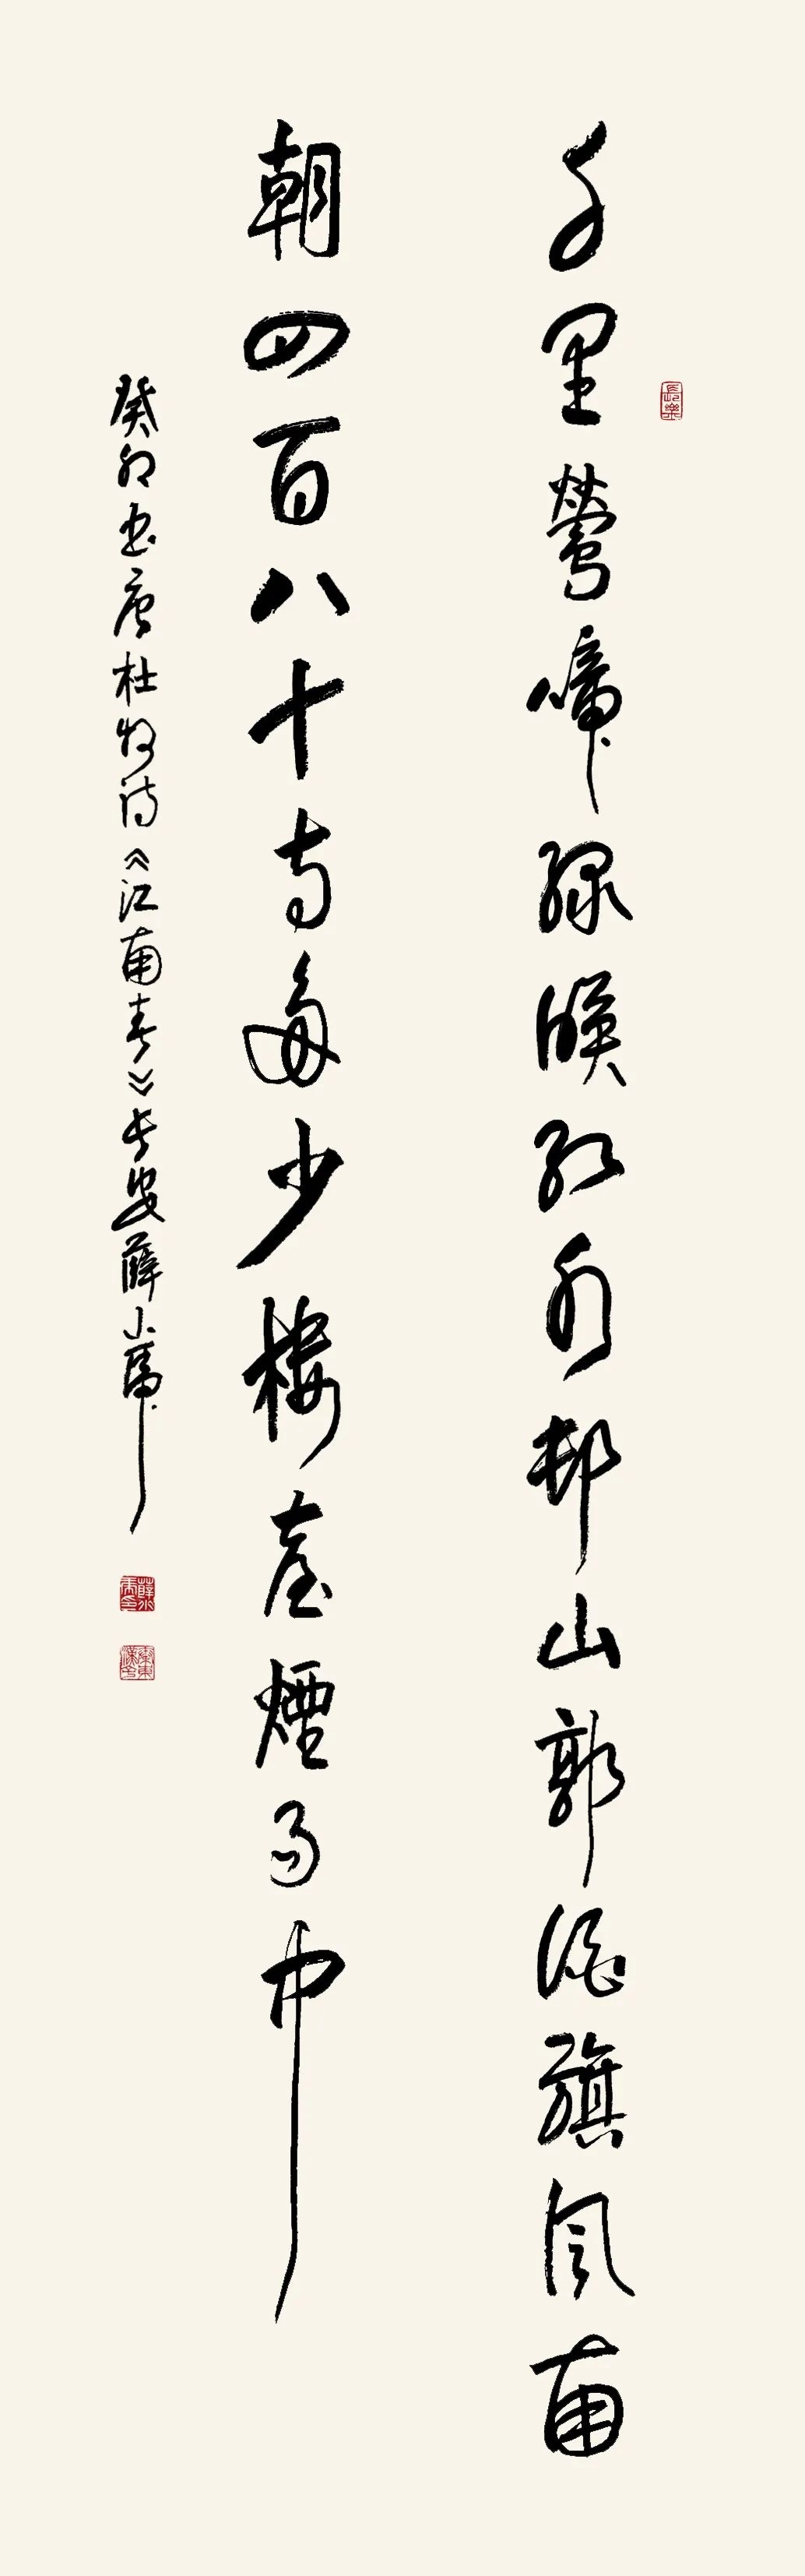 千里鶯啼綠暎紅水邨山郭酒旗風南
朝四百八十寺多少樓臺煙雨中
癸卯書唐杜牧詩《江南春》長安薛小虎
長樂